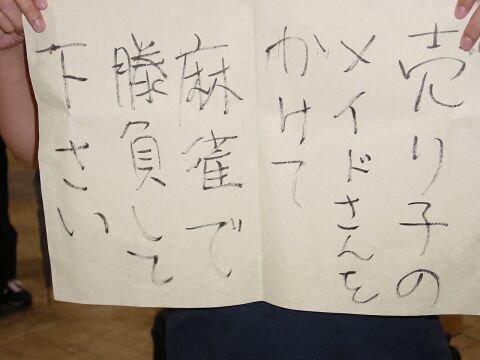 売り子の
メイドさんを
かけて
麻雀で
勝負して
下さい